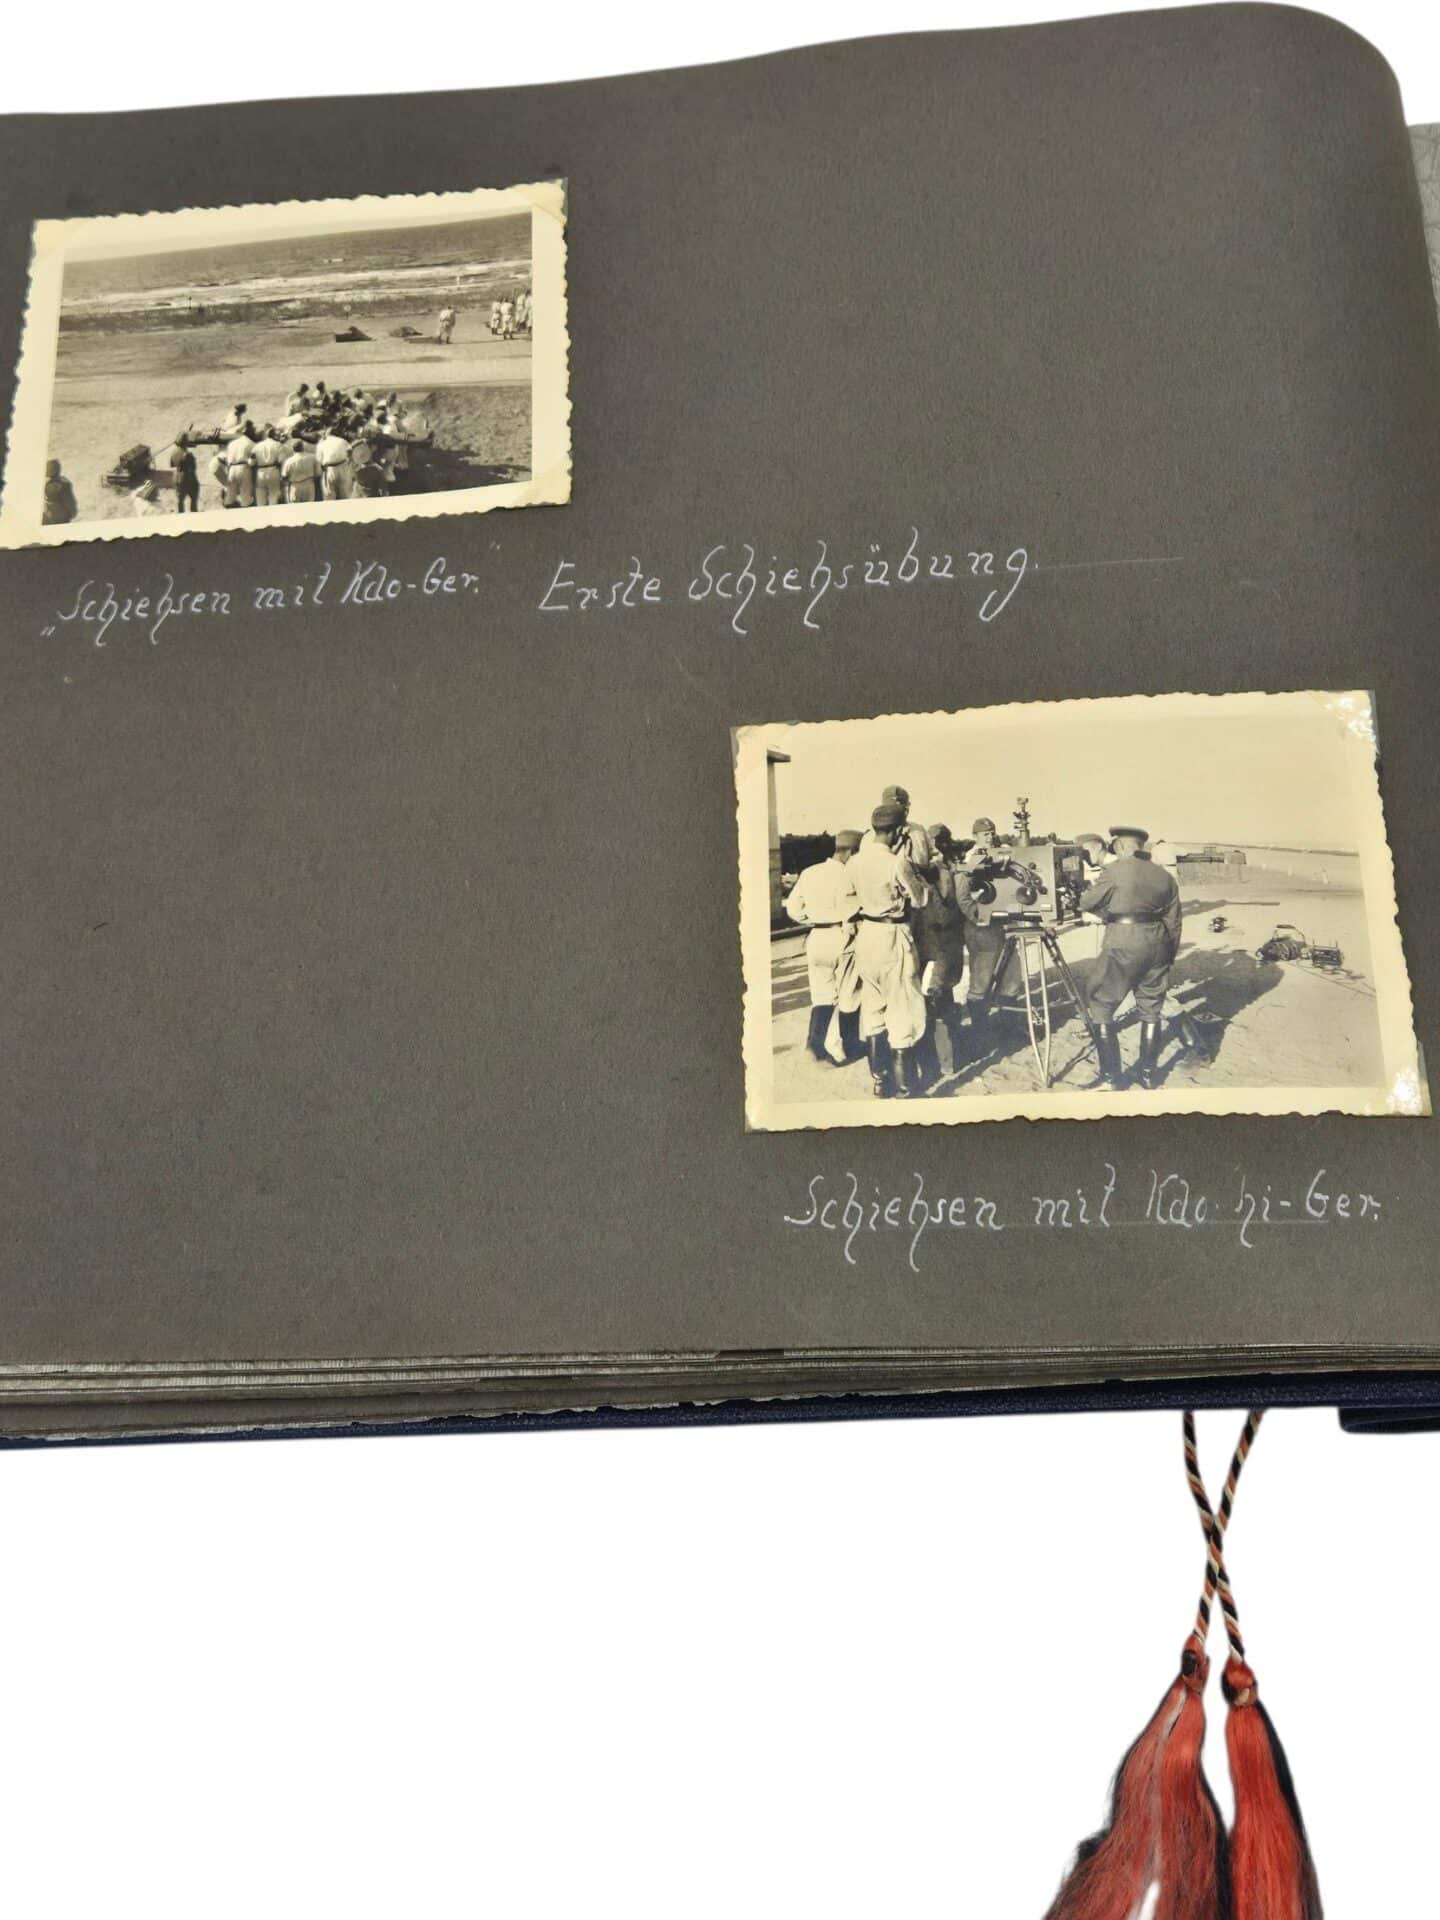 „Schiehsen mit Kdo-Ger.“ Erste Schiehsübung.
Schiehsen mit Kdo. hi-Ger.